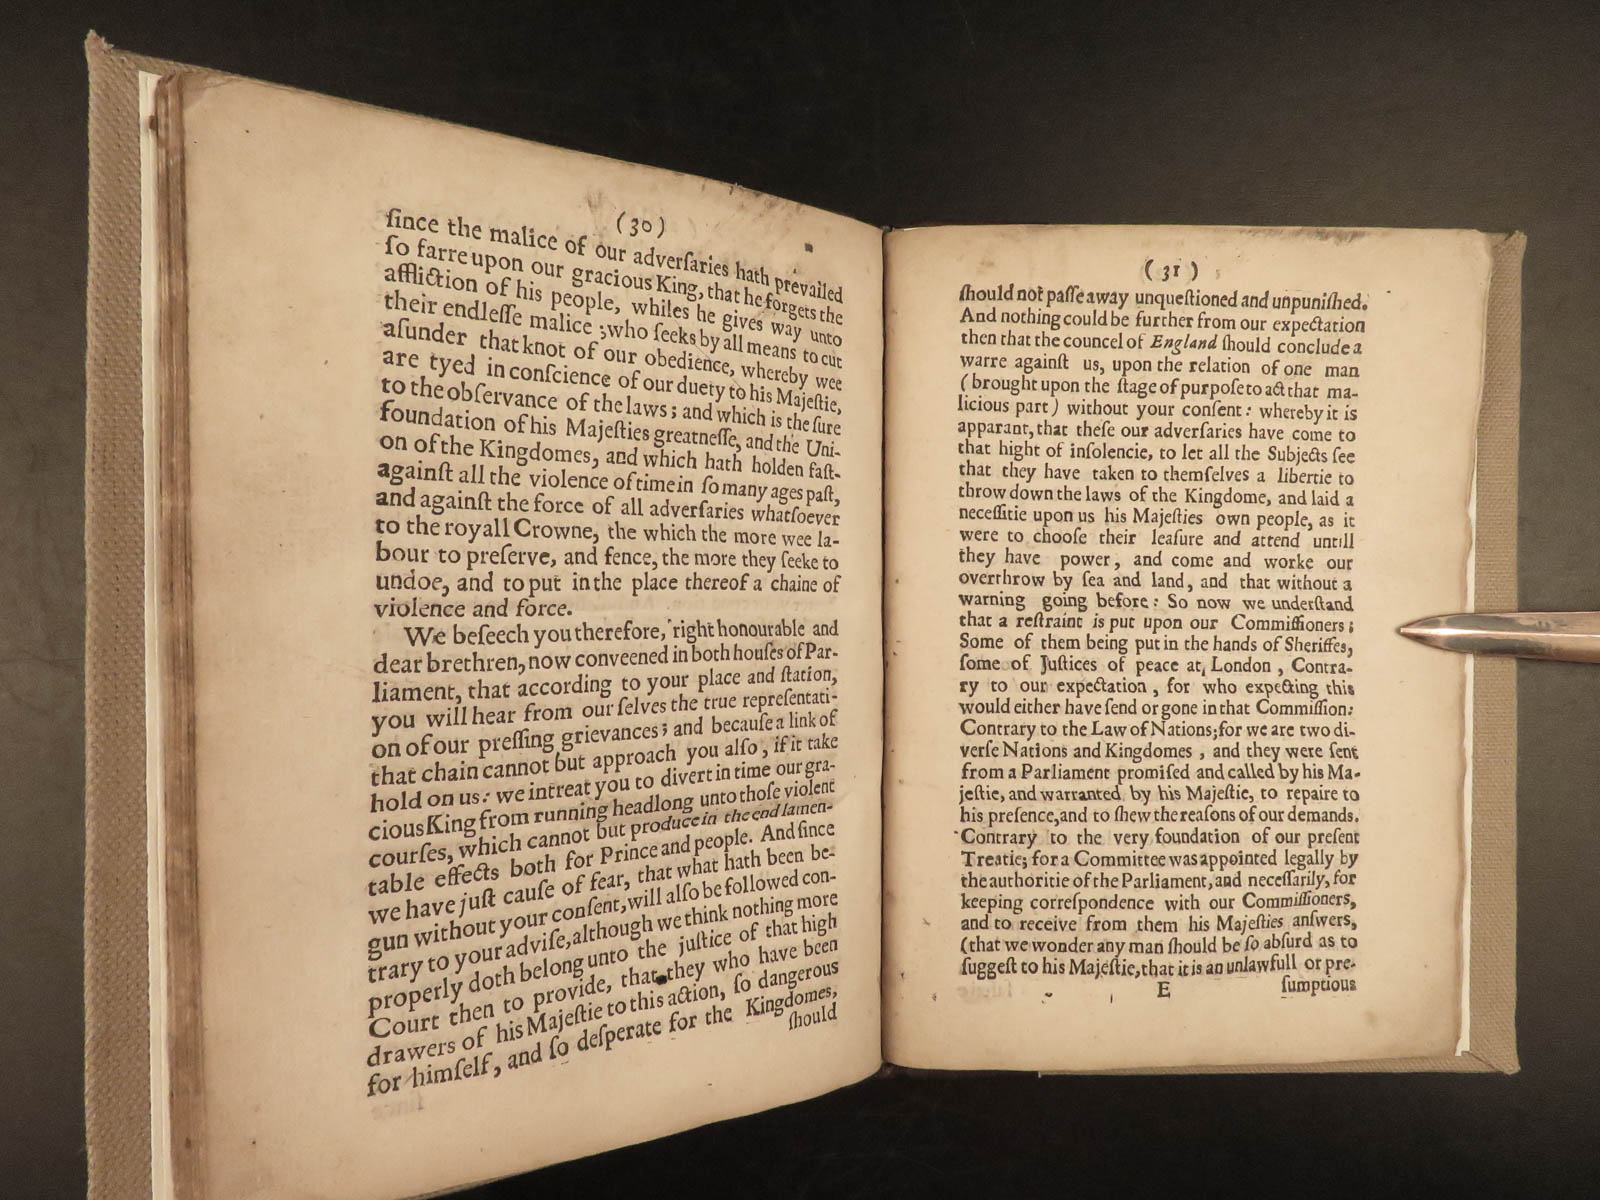 (30)
ſince the malice of our adverſaries hath prevailed
ſo farre upon our gracious King, that he forgets the
affliction of his people, whiles he gives way unto
their endleſſe malice ; who ſeeks by all means to cut
aſunder that knot of our obedience, whereby wee
are tyed in conſcience of our duety to his Majeſtie,
to the obſervance of the laws ; and which is the ſure
foundation of his Majeſties greatneſſe, and the Uni-
on of the Kingdomes, and which hath holden faſt-
againſt all the violence of time in ſo many ages paſt,
and againſt the force of all adverſaries whatſoever
to the royall Crowne, the which the more wee la-
bour to preſerve, and fence, the more they ſeeke to
undoe, and to put in the place thereof a chaine of
violence and force.
We beſeech you therefore, right honourable and
dear brethren, now conveened in both houſes of Par-
liament, that according to your place and ſtation,
you will hear from our ſelves the true repreſentati-
on of our preſſing grievances ; and becauſe a link of
that chain cannot but approach you alſo, if it take
hold on us : we intreat you to divert in time our gra-
cious King from running headlong unto thoſe violent
courſes, which cannot but produce in the end lamen-
table effects both for Prince and people. And ſince
we have juſt cauſe of fear, that what hath been be-
gun without your conſent, will alſo be followed con-
trary to your adviſe, although we think nothing more
properly doth belong unto the juſtice of that high
Court then to provide, that they who have been
drawers of his Majeſtie to this action, ſo dangerous
for himſelf, and ſo deſperate for the Kingdomes,
ſhould
(31)
ſhould not paſſe away unqueſtioned and unpuniſhed.
And nothing could be further from our expectation
then that the councel of England ſhould conclude a
warre againſt us, upon the relation of one man
(brought upon the ſtage of purpoſe to act that ma-
licious part) without your conſent : whereby it is
apparant, that theſe our adverſaries have come to
that hight of inſolencie, to let all the Subjects ſee
that they have taken to themſelves a libertie to
throw down the laws of the Kingdome, and laid a
neceſſitie upon us his Majeſties own people, as it
were to chooſe their leaſure and attend untill
they have power, and come and worke our
overthrow by ſea and land, and that without a
warning going before : So now we underſtand
that a reſtraint is put upon our Commiſſioners ;
Some of them being put in the hands of Sheriffes,
ſome of Juſtices of peace at London , Contra-
ry to our expectation , for who expecting this
would either have ſend or gone in that Commiſſion :
Contrary to the Law of Nations ; for we are two di-
verſe Nations and Kingdomes , and they were ſent
from a Parliament promiſed and called by his Ma-
jeſtie, and warranted by his Majeſtie, to repaire to
his preſence, and to ſhew the reaſons of our demands.
Contrary to the very foundation of our preſent
Treatie ; for a Committee was appointed legally by
the authoritie of the Parliament, and neceſſarily, for
keeping correſpondence with our Commiſſioners,
and to receive from them his Majeſties anſwers,
(that we wonder any man ſhould be ſo abſurd as to
ſuggeſt to his Majeſtie, that it is an unlawfull or pre-
E ſumptious